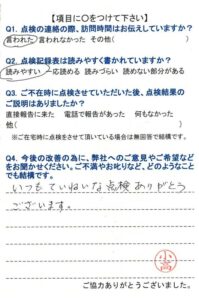 【項目に○をつけて下さい】
Q1. 点検の連絡の際、訪問時間はお伝えしていますか？
言われた 言われなかった その他( )
Q2. 点検記録表は読みやすく書かれていますか？
読みやすい 一応読める 読みづらい 読めない部分がある
Q3. ご不在時に点検させていただいた後、点検結果の
ご説明はありましたか？
直接報告に来た 電話で報告があった 何もなかった
他( )
※ご在宅時に点検をさせて頂いている場合は無回答で結構です。
Q4. 今後の改善の為に、弊社へのご意見やご希望など
をお聞かせください。ご不満やお叱りなど、どのようなこと
でも結構です。
いつもていねいな点検ありがとう
ございます。
ご協力ありがとうございました。